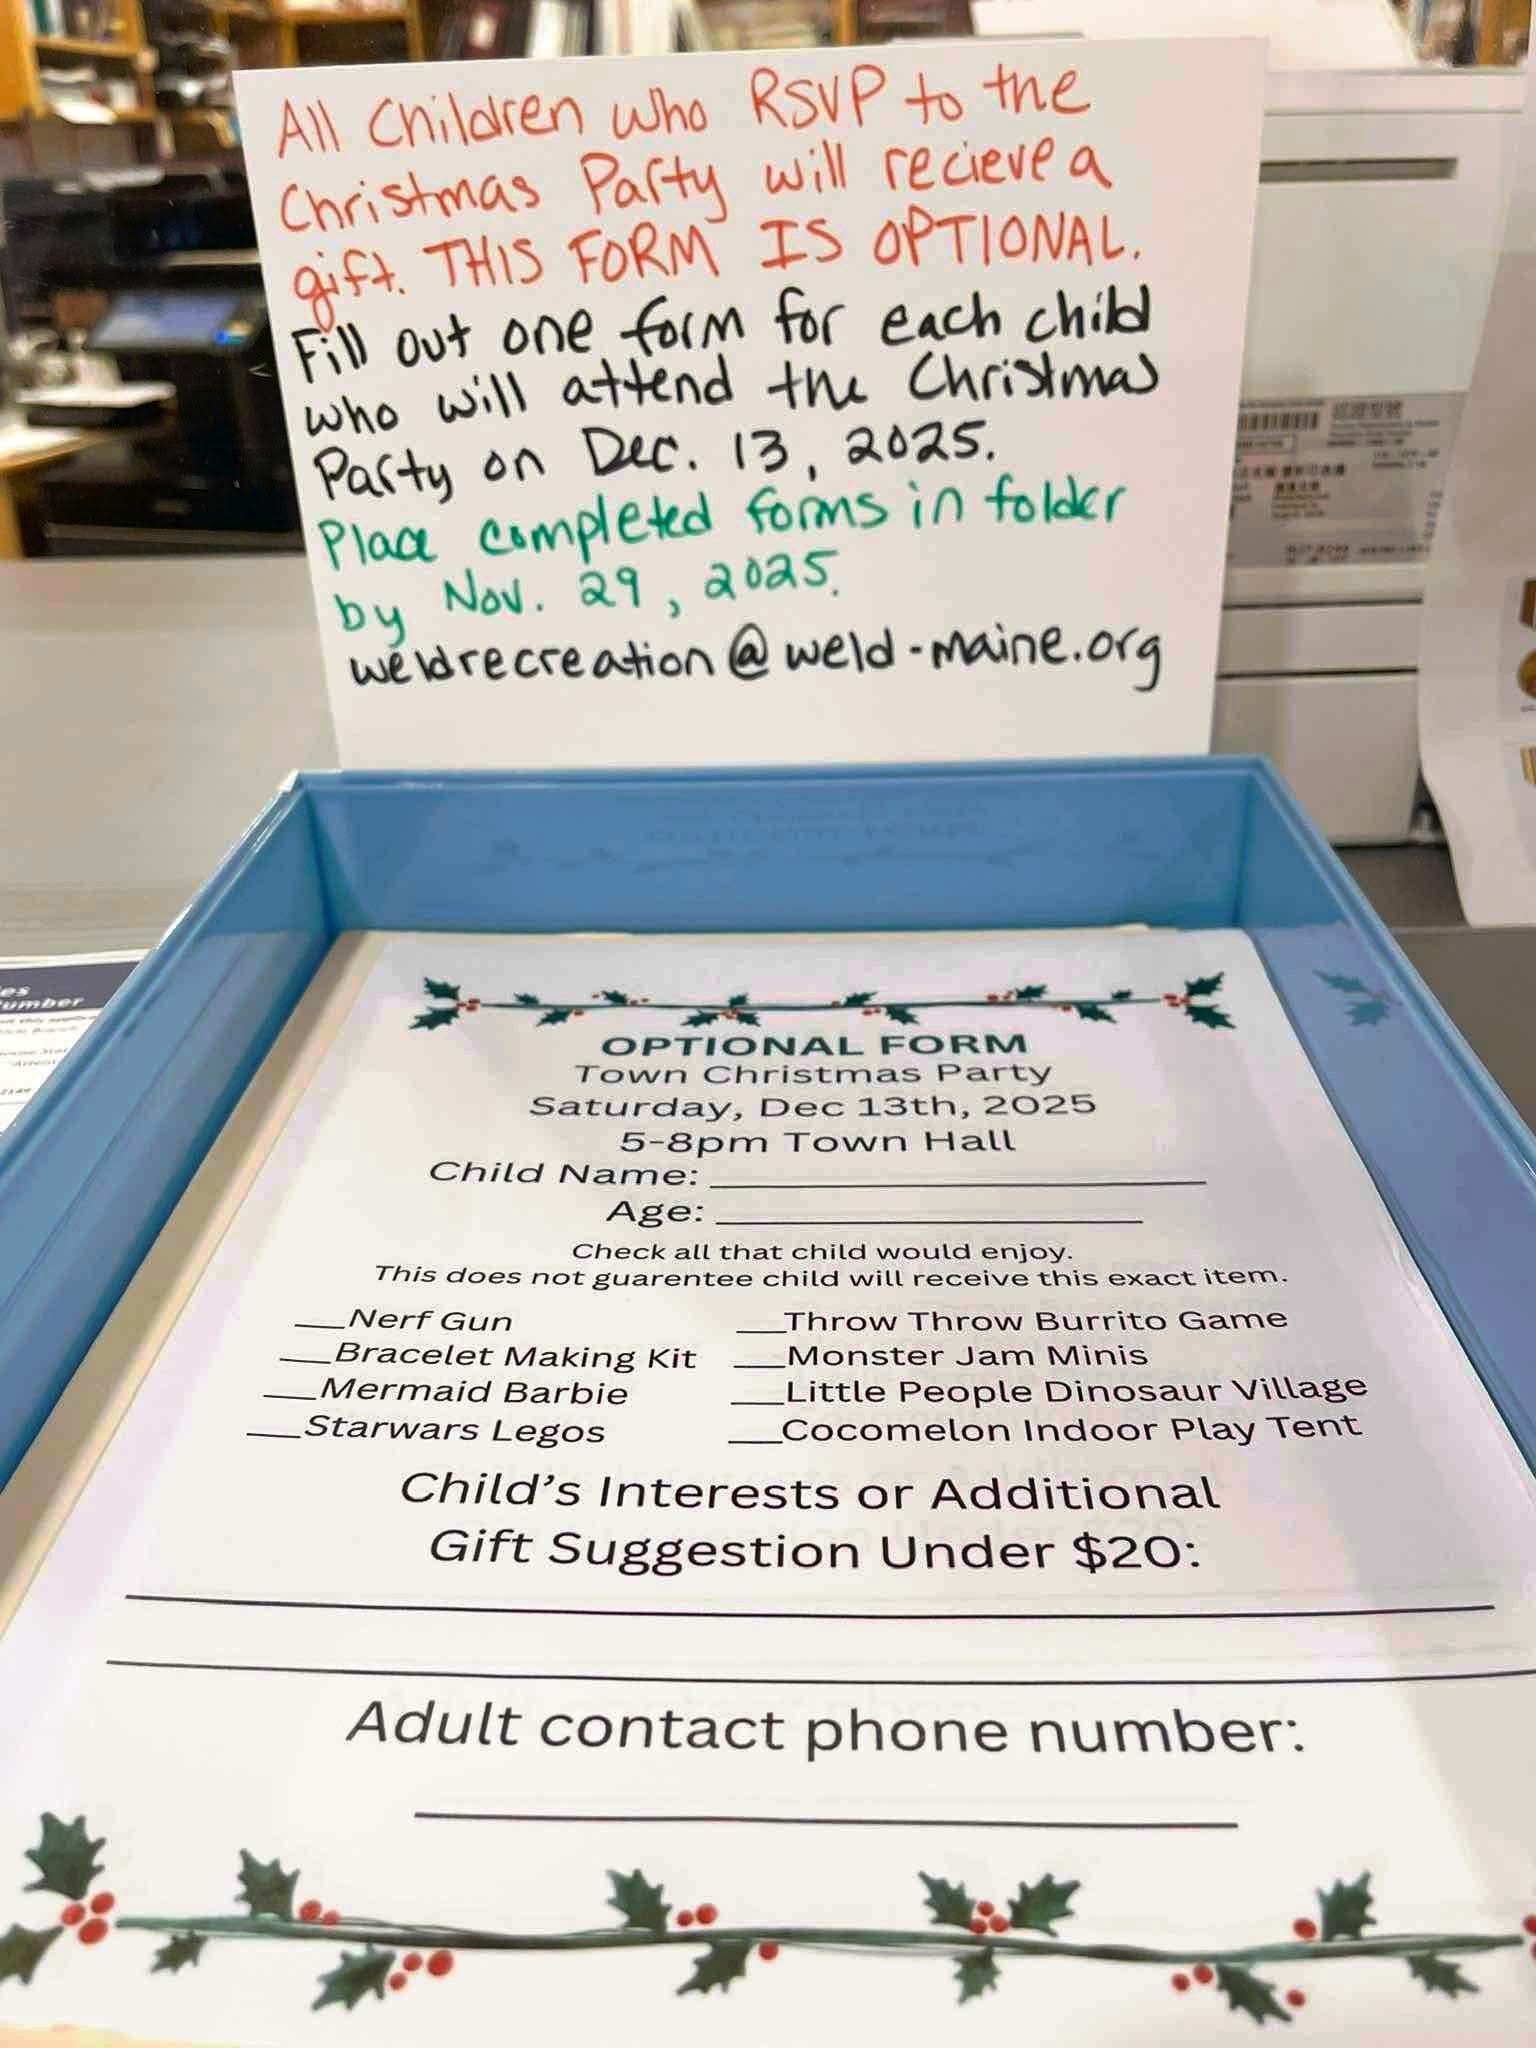 All Children who RSVP to the
Christmas Party will recieve a
gift. THIS FORM IS OPTIONAL.
Fill out one form for each child
who will attend the Christmas
Party on Dec. 13, 2025.
Place completed forms in folder
by Nov. 29, 2025.
weldrecreation@weld-maine.org
OPTIONAL FORM
Town Christmas Party
Saturday, Dec 13th, 2025
5-8pm Town Hall
Child Name:
Age:
Check all that child would enjoy.
This does not guarentee child will receive this exact item.
Nerf Gun
Bracelet Making Kit
Mermaid Barbie
Starwars Legos
Throw Throw Burrito Game
Monster Jam Minis
Little People Dinosaur Village
Cocomelon Indoor Play Tent
Child's Interests or Additional
Gift Suggestion Under $20:
Adult contact phone number: